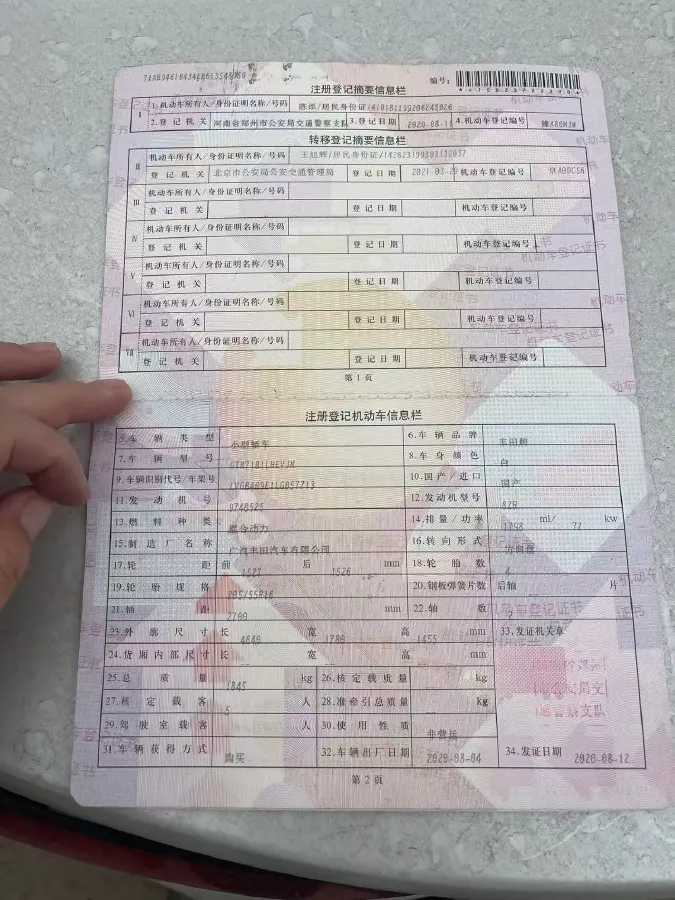 编号：
注册登记摘要信息栏
I 1.机动车所有人/身份证明名称/号码 /居民身份证/
2.登记机关 河南省郑州市公安局交通警察支队 3.登记日期 2020-08-1 4.机动车登记编号
转移登记摘要信息栏
II 机动车所有人/身份证明名称/号码 王旭辉/居民身份证/
登记机关 北京市公安局公安交通管理局 登记日期 2021-03- 机动车登记编号
III 机动车所有人/身份证明名称/号码
登记机关 登记日期 机动车登记编号
IV 机动车所有人/身份证明名称/号码
登记机关 登记日期 机动车登记编号
V 机动车所有人/身份证明名称/号码
登记机关 登记日期 机动车登记编号
VI 机动车所有人/身份证明名称/号码
登记机关 登记日期 机动车登记编号
VII 机动车所有人/身份证明名称/号码
登记机关 登记日期 机动车登记编号
第1页
注册登记机动车信息栏
5.车辆类型 小型轿车 6.车辆品牌 丰田牌
7.车辆型号 8.车身颜色 白
9.车辆识别代号/车架号 10.国产/进口 国产
11.发动机号 12.发动机型号 8ZR
13.燃料种类 混合动力 14.排量/功率 1798 ml/ 72 kw
15.制造厂名称 广汽丰田汽车有限公司 16.转向形式 方向盘
17.轮距 前 1527 后 1526 mm 18.轮胎数 4
19.轮胎规格 205/55R16 20.钢板弹簧片数 后轴 片
21.轴距 2700 mm 22.轴数
23.外廓尺寸 长 4640 宽 1780 高 1455 mm 33.发证机关章
24.货厢内部尺寸 长 宽 高 mm
25.总质量 1845 kg 26.核定载质量 kg
27.核定载客 5 人 28.准牵引总质量 kg
29.驾驶室载客 人 30.使用性质 非营运
31.车辆获得方式 购买 32.车辆出厂日期 2020-08-04 34.发证日期 2020-08-12
第2页